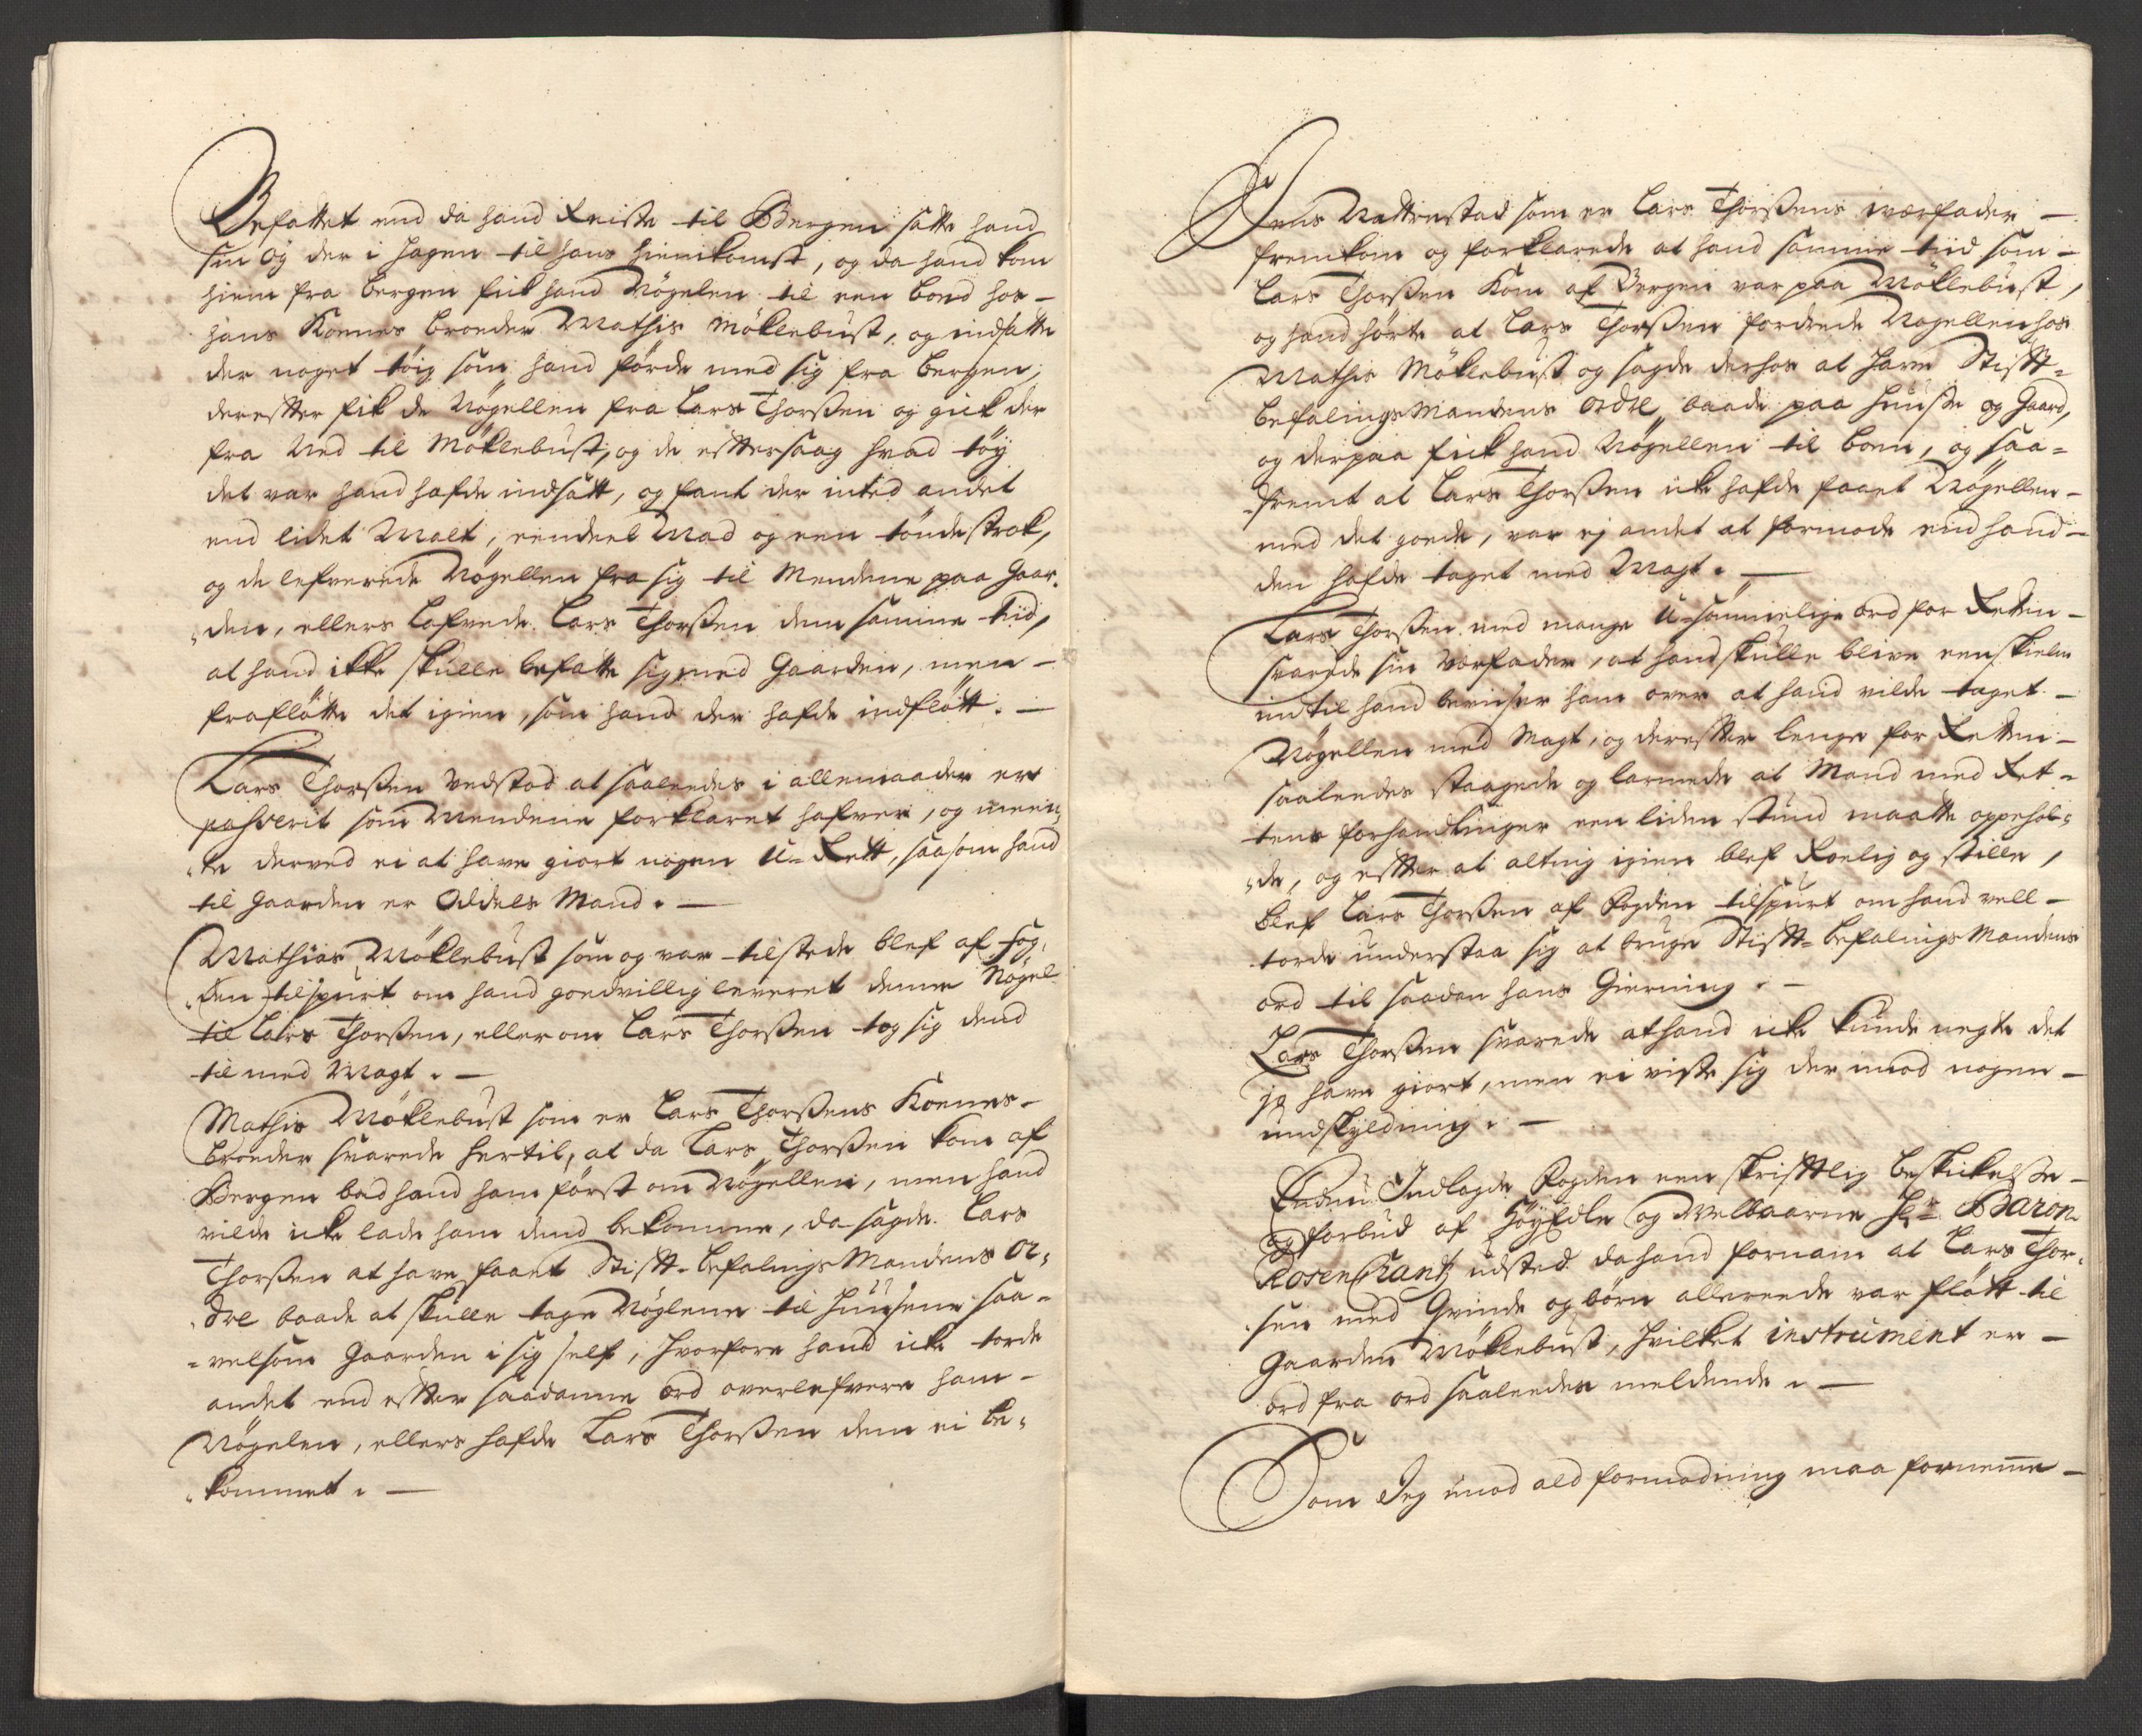 Befattet end da hand Reiste til Bergen satte hand
sin Öÿ der i Hagen til hans hiemkomst, og da hand kom
hiem fra Bergen fick hand Nögelen til een boed hos-
hans Konnes broeder Mathis Möklebust, og indsatte
der noget töig som hand förde med sig fra Bergen;
derefter fik de Nögellen fra Lars Thorßen og gick der
fra Ned til Möklebust, og de efttersaag hvad töÿ
det var hand hafde indsatt, og fant der inted andet
end lidet Malt, eendeel Mad og een tönde strok,
og de lefverede Nögellen fra sig til Mendene paa Gaar-
den, ellers Lofvede Lars Thorßen dem samme tiid,
at hand ikke skulle befatte sig med Gaarden, men-
fraflötte det igien, som hand der hafde indflött. -
Lars Thorßen vedstod at saaleedes i allemaader er
passerit som Mendene forklaret hafver, og meen-
te derved ei at have giort nogen U-Rett, saasom hand
til Gaarden er Oddels Mand. -
Mathias Möklebust som og var tilstede blef af Fog-
den tilspurt om hand goedvillig leveret denne Nögel
til Lars Thorßen, eller om Lars Thorßen tog sig dend
til med Magt. -
Mathis Möklebust som er Lars Thorßens Konnes-
broeder svarede hertil, at da Lars Thorßen kom af
Bergen bad hand ham först om Nögellen, men hand
vilde icke lade ham dend bekomme, da sagde Lars
Thorßen at have faaet Stifft-befalings Mandens or-
dre baade at skulle tage Nöglene til Huusene saa-
velsom Gaarden i sig self, hvorfore hand icke torde
andet end effter saadanne ord overlefvere ham-
Nögelen, ellers hafde Lars Thorßen dem ei be-
kommet. -
Jens Nattvestad som er Lars Thorßens værfader -
fremkom og forklarede at hand samme tiid som -
Lars Thorßen Kom af Bergen var paa Möklebust,
og hand hörte at Lars Thorßen fordrede Nögellen hos
Mathis Möklebust og sagde derhos at have Stifft-
befalings Mandens ordre baade paa Huuse og Gaard,
og derpaa fick hand Nögellen til boen, og saa-
fremt at Lars Thorßen icke hafde faaet Nögellen -
med det goede, var ej andet at formode end hand -
den hafde taget med Magt. -
Lars Thorßen med mange U-sömmelige ord for Retten -
svarede sin Værfader, at hand skulle blive een skielm
indtil hand beviiser ham over at hand vilde taget -
Nögellen med Magt, og dereffter lenge for Retten -
saaleedes staagede og larmede at Mand med Ret-
tens forhandlinger een liden stund maatte oppehol-
de, og effter at alting igien blef Roelig og stille,
blef Lars Thorßen af Fogden tilspurt om hand vell -
torde understaa sig at bruge Stifft-befalings Mandens
ord til saadan hans Gierning. -
Lars Thorßen svarede at hand icke kunde negte det
jo have giort, men ei viste sig der imod nogen -
undskyldning. -
Endnu Indlagde Fogden een skrifftlig beskickelße -
og forbud af Höÿædle og Velbaarne Hr. Baron
RosenCrantz udsted da hand fornam at Lars Thor-
sen med Qvinde og börn allereede var flött til
Gaarden Möklebust, hvilket instrument er -
ord fra ord saaleedes meldende. -
Som Jeg imod ald formodning maa fornemme -